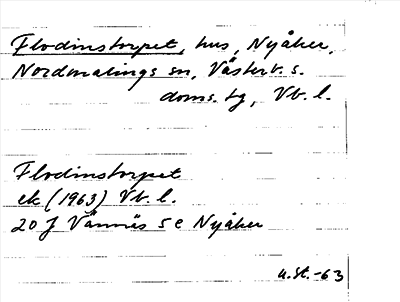 Flodinstorpet, hus, Nyåker,
Nordmalings sn, Västerb. s.
doms. tg, Vb. l.
Flodinstorpet
ek (1963) Vb. l.
20 J Vännäs 5 e Nyåker
u. St. -63